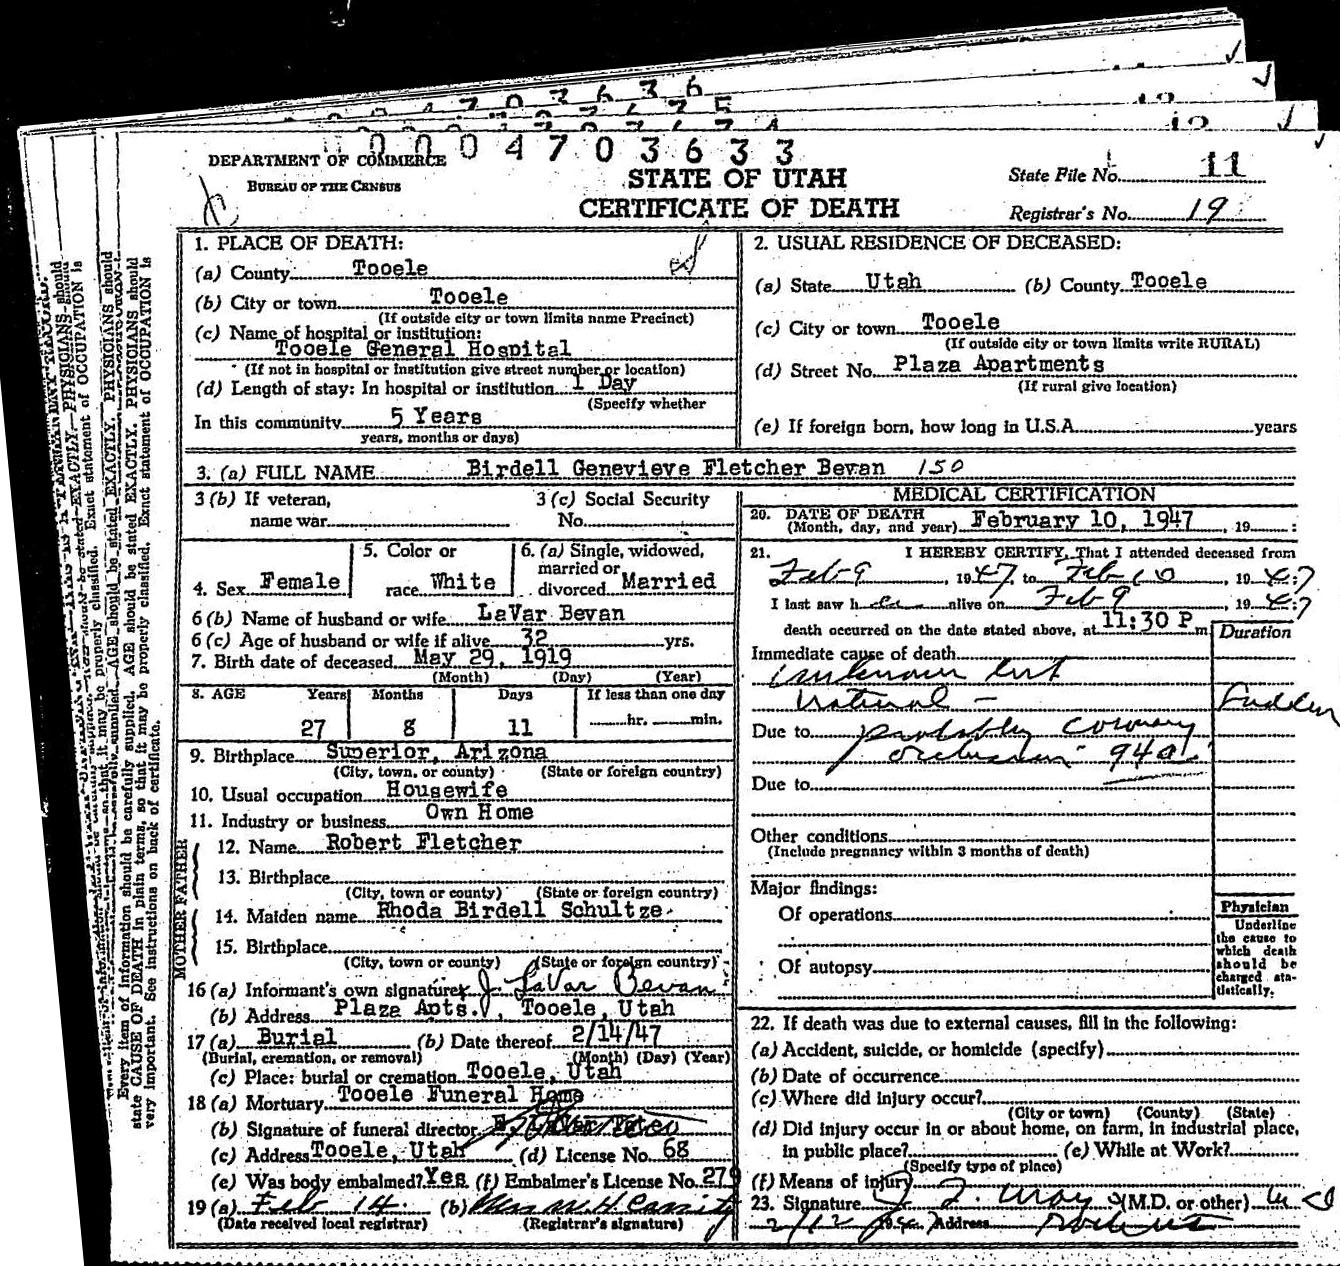 0 0 0 4 7 0 3 6 3 3
DEPARTMENT OF COMMERCE
BUREAU OF THE CENSUS
STATE OF UTAH
CERTIFICATE OF DEATH
State File No. 11
Registrar's No. 19
1. PLACE OF DEATH:
(a) County Tooele
(b) City or town Tooele
(If outside city or town limits name Precinct)
(c) Name of hospital or institution:
Tooele General Hospital
(If not in hospital or institution give street number or location)
(d) Length of stay: In hospital or institution 1 Day
(Specify whether
In this community 5 Years
years, months or days)
2. USUAL RESIDENCE OF DECEASED:
(a) State Utah (b) County Tooele
(c) City or town Tooele
(If outside city or town limits write RURAL)
(d) Street No. Plaza Apartments
(If rural give location)
(e) If foreign born, how long in U.S.A. years
3. (a) FULL NAME Birdell Genevieve Fletcher Bevan 150
3 (b) If veteran,
name war
3 (c) Social Security
No.
4. Sex Female
5. Color or
race White
6. (a) Single, widowed,
married or
divorced Married
6 (b) Name of husband or wife LaVar Bevan
6 (c) Age of husband or wife if alive 32 yrs.
7. Birth date of deceased May 29, 1919
(Month) (Day) (Year)
8. AGE Years Months Days If less than one day
27 8 11 hr. min.
9. Birthplace Superior, Arizona
(City, town, or county) (State or foreign country)
10. Usual occupation Housewife
11. Industry or business Own Home
FATHER
12. Name Robert Fletcher
13. Birthplace
(City, town or county) (State or foreign country)
MOTHER
14. Maiden name Rhoda Birdell Schultze
15. Birthplace
(City, town or county) (State or foreign country)
16 (a) Informant's own signature J. LaVar Bevan
(b) Address Plaza Apts., Tooele, Utah
17 (a) Burial (b) Date thereof 2/14/47
(Burial, cremation, or removal) (Month) (Day) (Year)
(c) Place: burial or cremation Tooele, Utah
18 (a) Mortuary Tooele Funeral Home
(b) Signature of funeral director
(c) Address Tooele, Utah (d) License No. 68
(e) Was body embalmed? Yes (f) Embalmer's License No. 279
19 (a) Feb 14 (b) Mrs W. H. Cassity
(Date received local registrar) (Registrar's signature)
MEDICAL CERTIFICATION
20. DATE OF DEATH
(Month, day, and year) February 10, 1947, 19
21. I HEREBY CERTIFY, That I attended deceased from
Feb 9, 1947, to Feb 10, 1947
I last saw her alive on Feb 9, 1947
death occurred on the date stated above, at 11:30 P m
Duration
Immediate cause of death
unknown but
natural - Sudden
Due to probably coronary
occlusion 94a
Due to
Other conditions
(Include pregnancy within 3 months of death)
Major findings:
Of operations
Of autopsy
Physician
Underline
the cause to
which death
should be
charged sta-
tistically.
22. If death was due to external causes, fill in the following:
(a) Accident, suicide, or homicide (specify)
(b) Date of occurrence
(c) Where did injury occur?
(City or town) (County) (State)
(d) Did injury occur in or about home, on farm, in industrial place,
in public place? (e) While at Work?
(Specify type of place)
(f) Means of injury
23. Signature (M.D. or other) M D
2/12 1947 Address
Every item of information should be carefully supplied. AGE should be stated EXACTLY. PHYSICIANS should
state CAUSE OF DEATH in plain terms, so that it may be properly classified. Exact statement of OCCUPATION is
very important. See instructions on back of certificate.